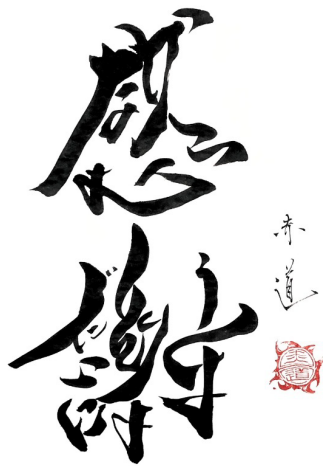 感謝
赤道